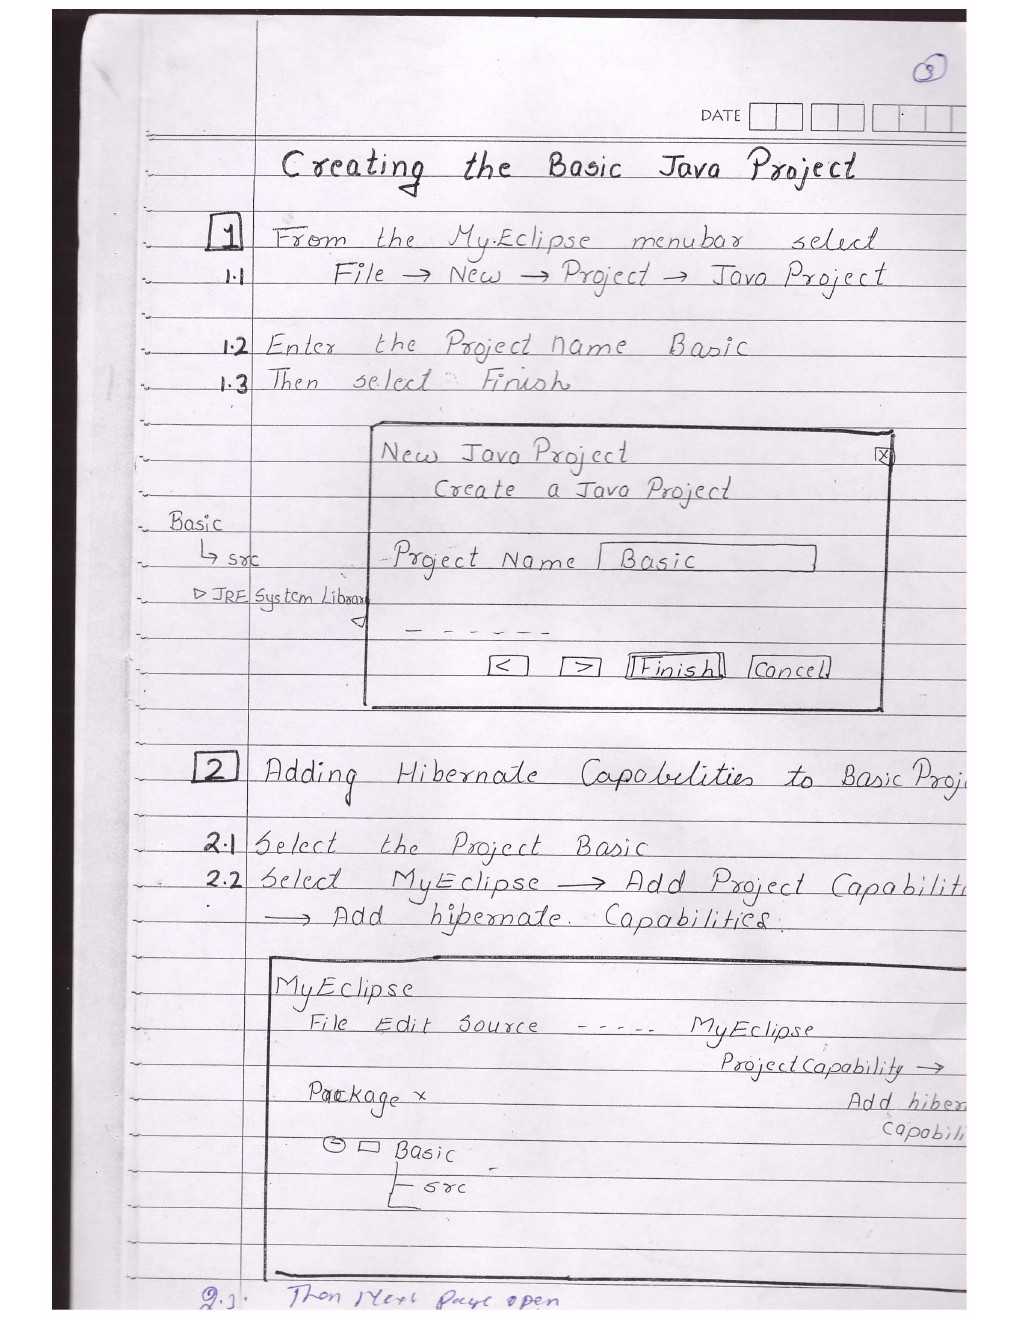 3
DATE
Creating the Basic Java Project
1 From the MyEclipse menubar select
1.1 File → New → Project → Java Project
1.2 Enter the Project name Basic
1.3 Then select Finish
New Java Project
X
Create a Java Project
Basic
↳ src
▷ JRE System Library
Project Name Basic
- - - - - -
< > Finish Cancel
2 Adding Hibernate Capabelities to Basic Proje
2.1 Select the Project Basic
2.2 Select MyEclipse → Add Project Capabiliti
→ Add hibernate. Capabilities.
MyEclipse
File Edit Source - - - - - MyEclipse
Project Capability →
Package x
Add hiber
Capabili
Basic
src
2.3. Then Next page open